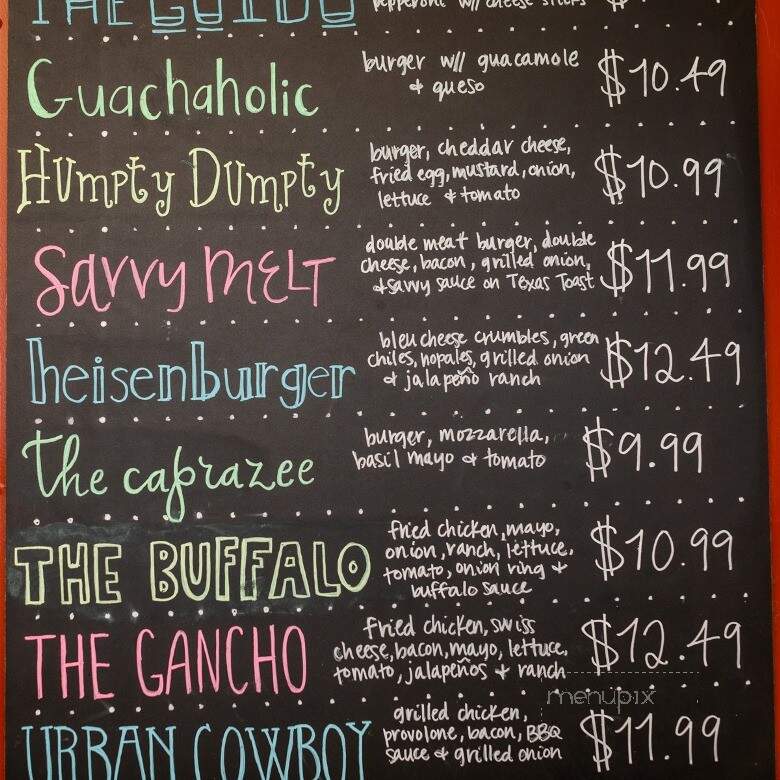 THE GUIDO
pepperoni w/ cheese sticks
Guachaholic
burger w/ guacamole
& queso
$10.49
Humpty Dumpty
burger, cheddar cheese,
fried egg, mustard, onion,
lettuce & tomato
$10.99
Savvy MELT
double meat burger, double
cheese, bacon, grilled onion,
& savvy sauce on Texas Toast
$11.99
heisenburger
bleu cheese crumbles, green
chiles, nopales, grilled onion
& jalapeño ranch
$12.49
the caprazee
burger, mozzarella,
basil mayo & tomato
$9.99
THE BUFFALO
fried chicken, mayo,
onion, ranch, lettuce,
tomato, onion ring &
buffalo sauce
$10.99
THE GANCHO
fried chicken, swiss
cheese, bacon, mayo, lettuce,
tomato, jalapeños & ranch
$12.49
menupix
URBAN COWBOY
grilled chicken,
provolone, bacon, BBQ
sauce & grilled onion
$11.99